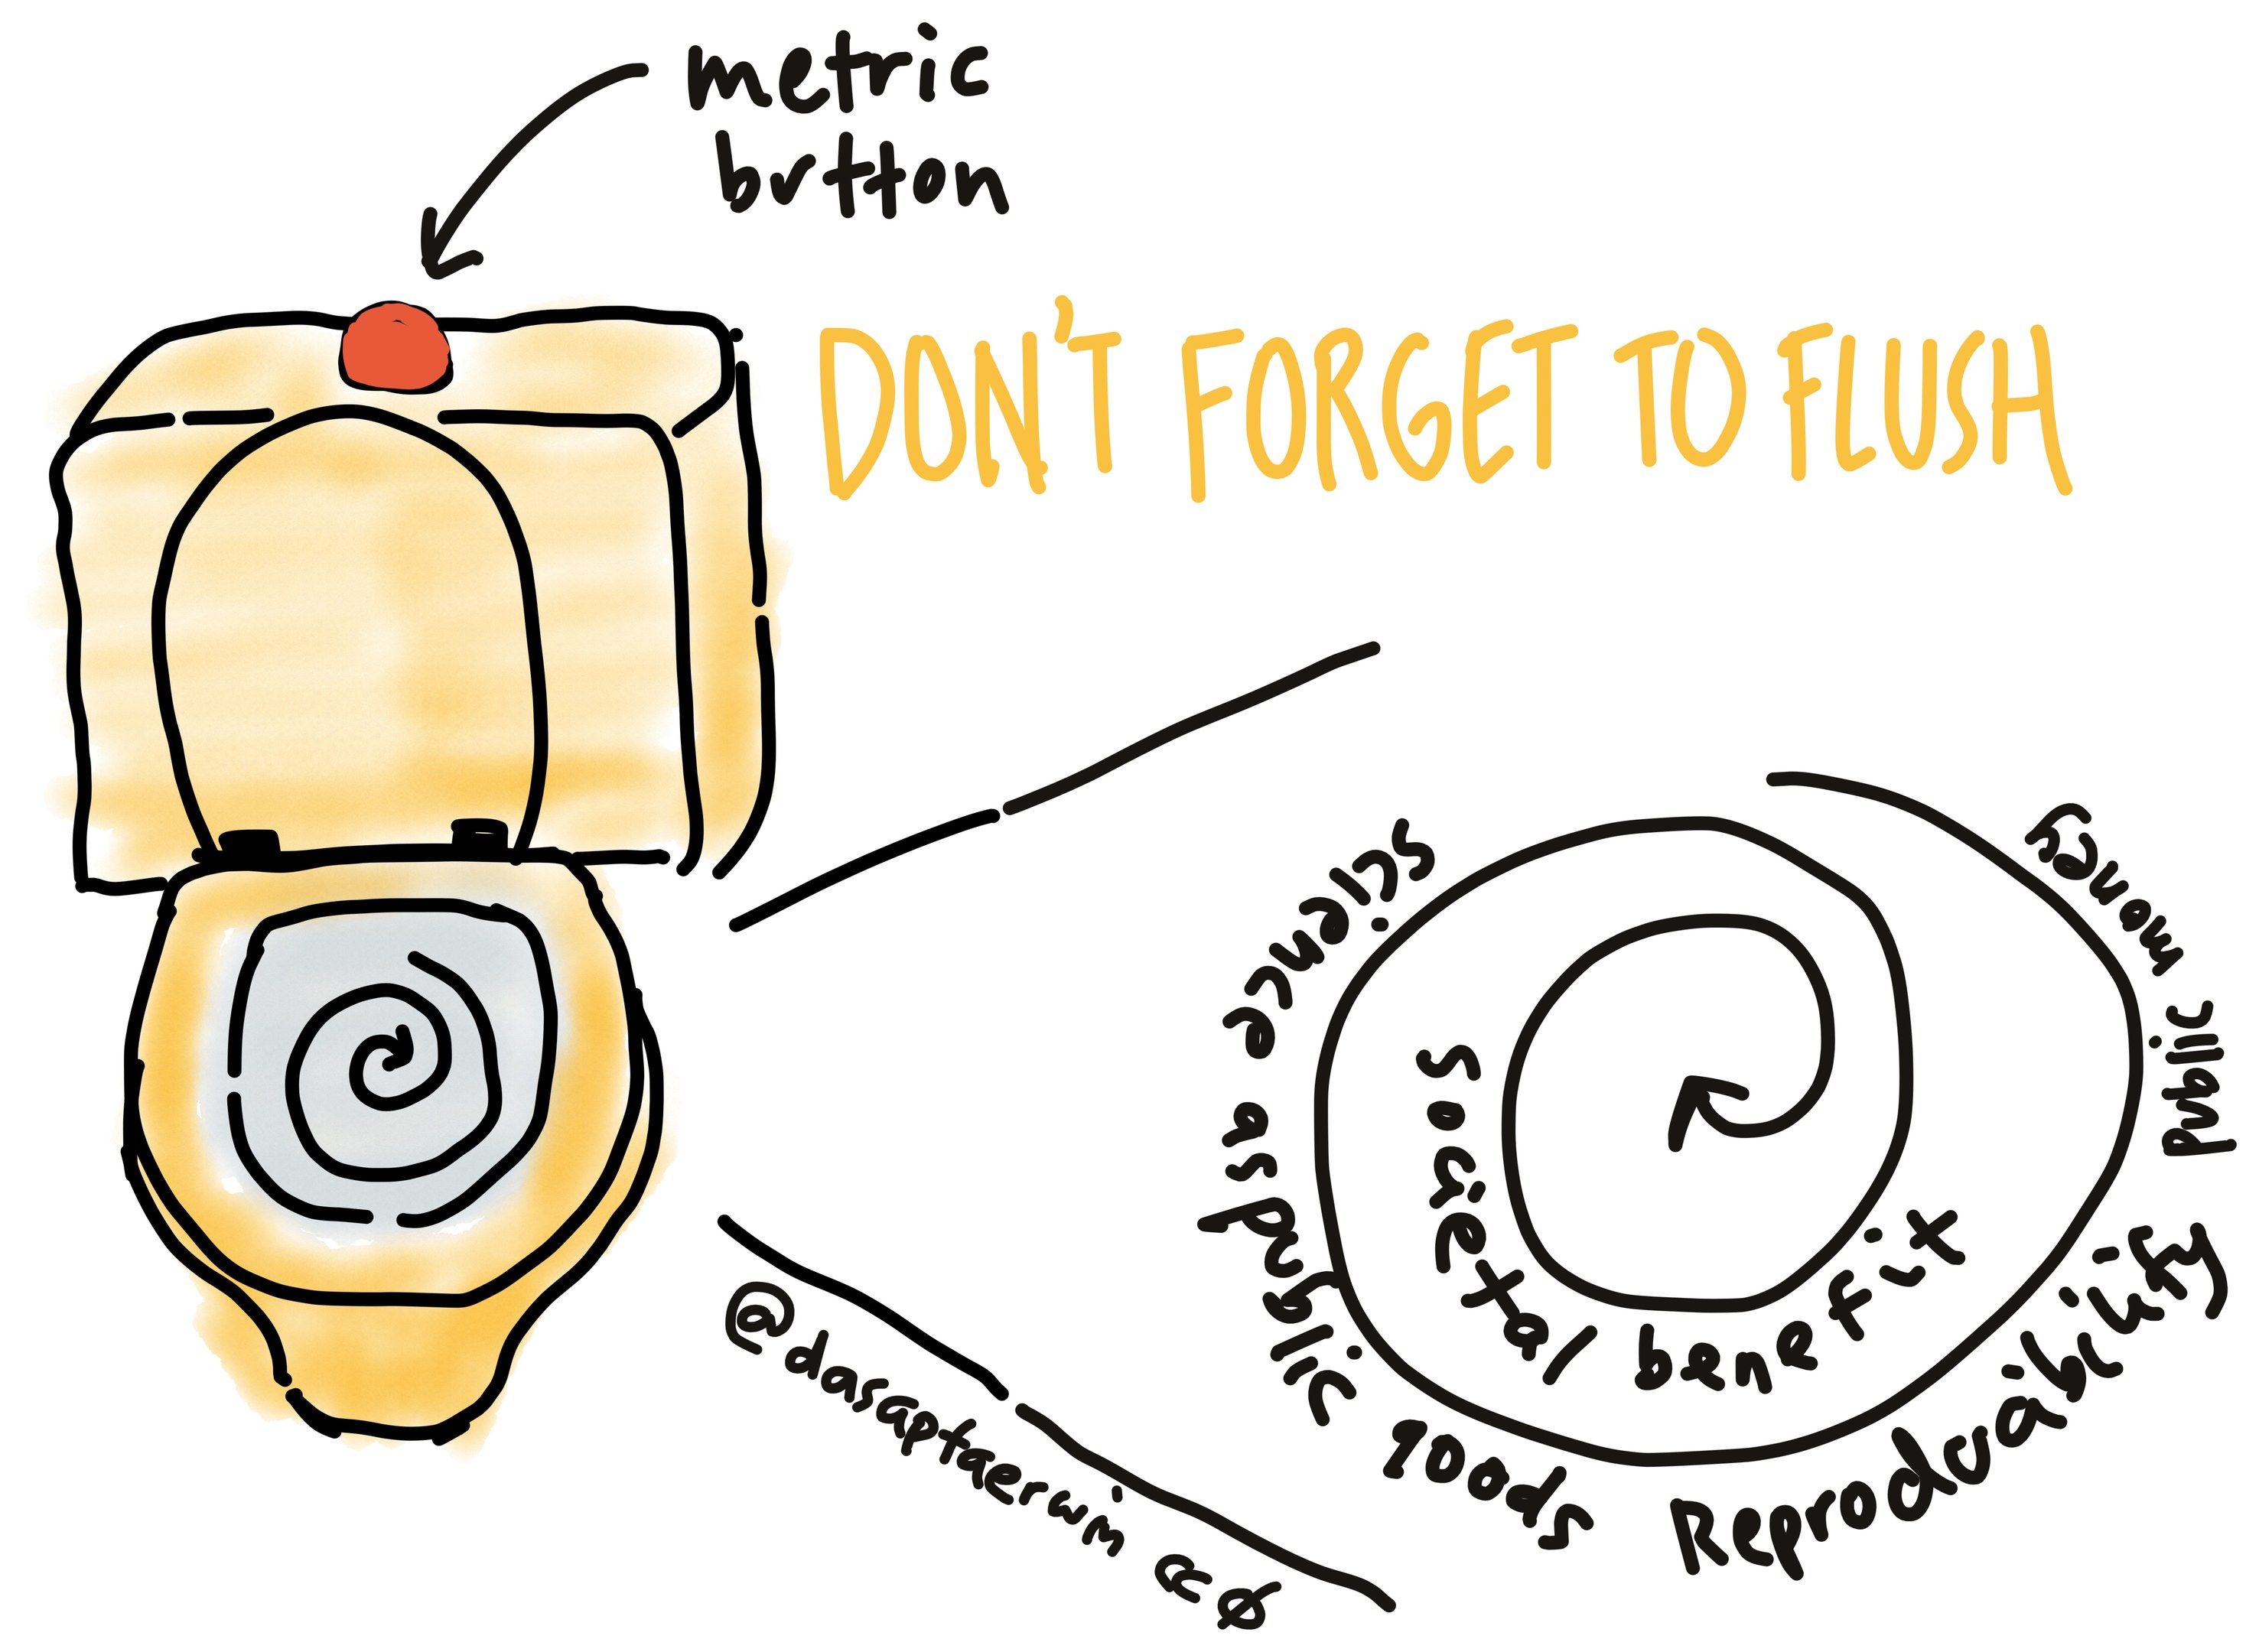 metric
button
DON'T FORGET TO FLUSH
public money
science as public goods
societal benefit
Reproducibility
@dasaptaerwin cc0